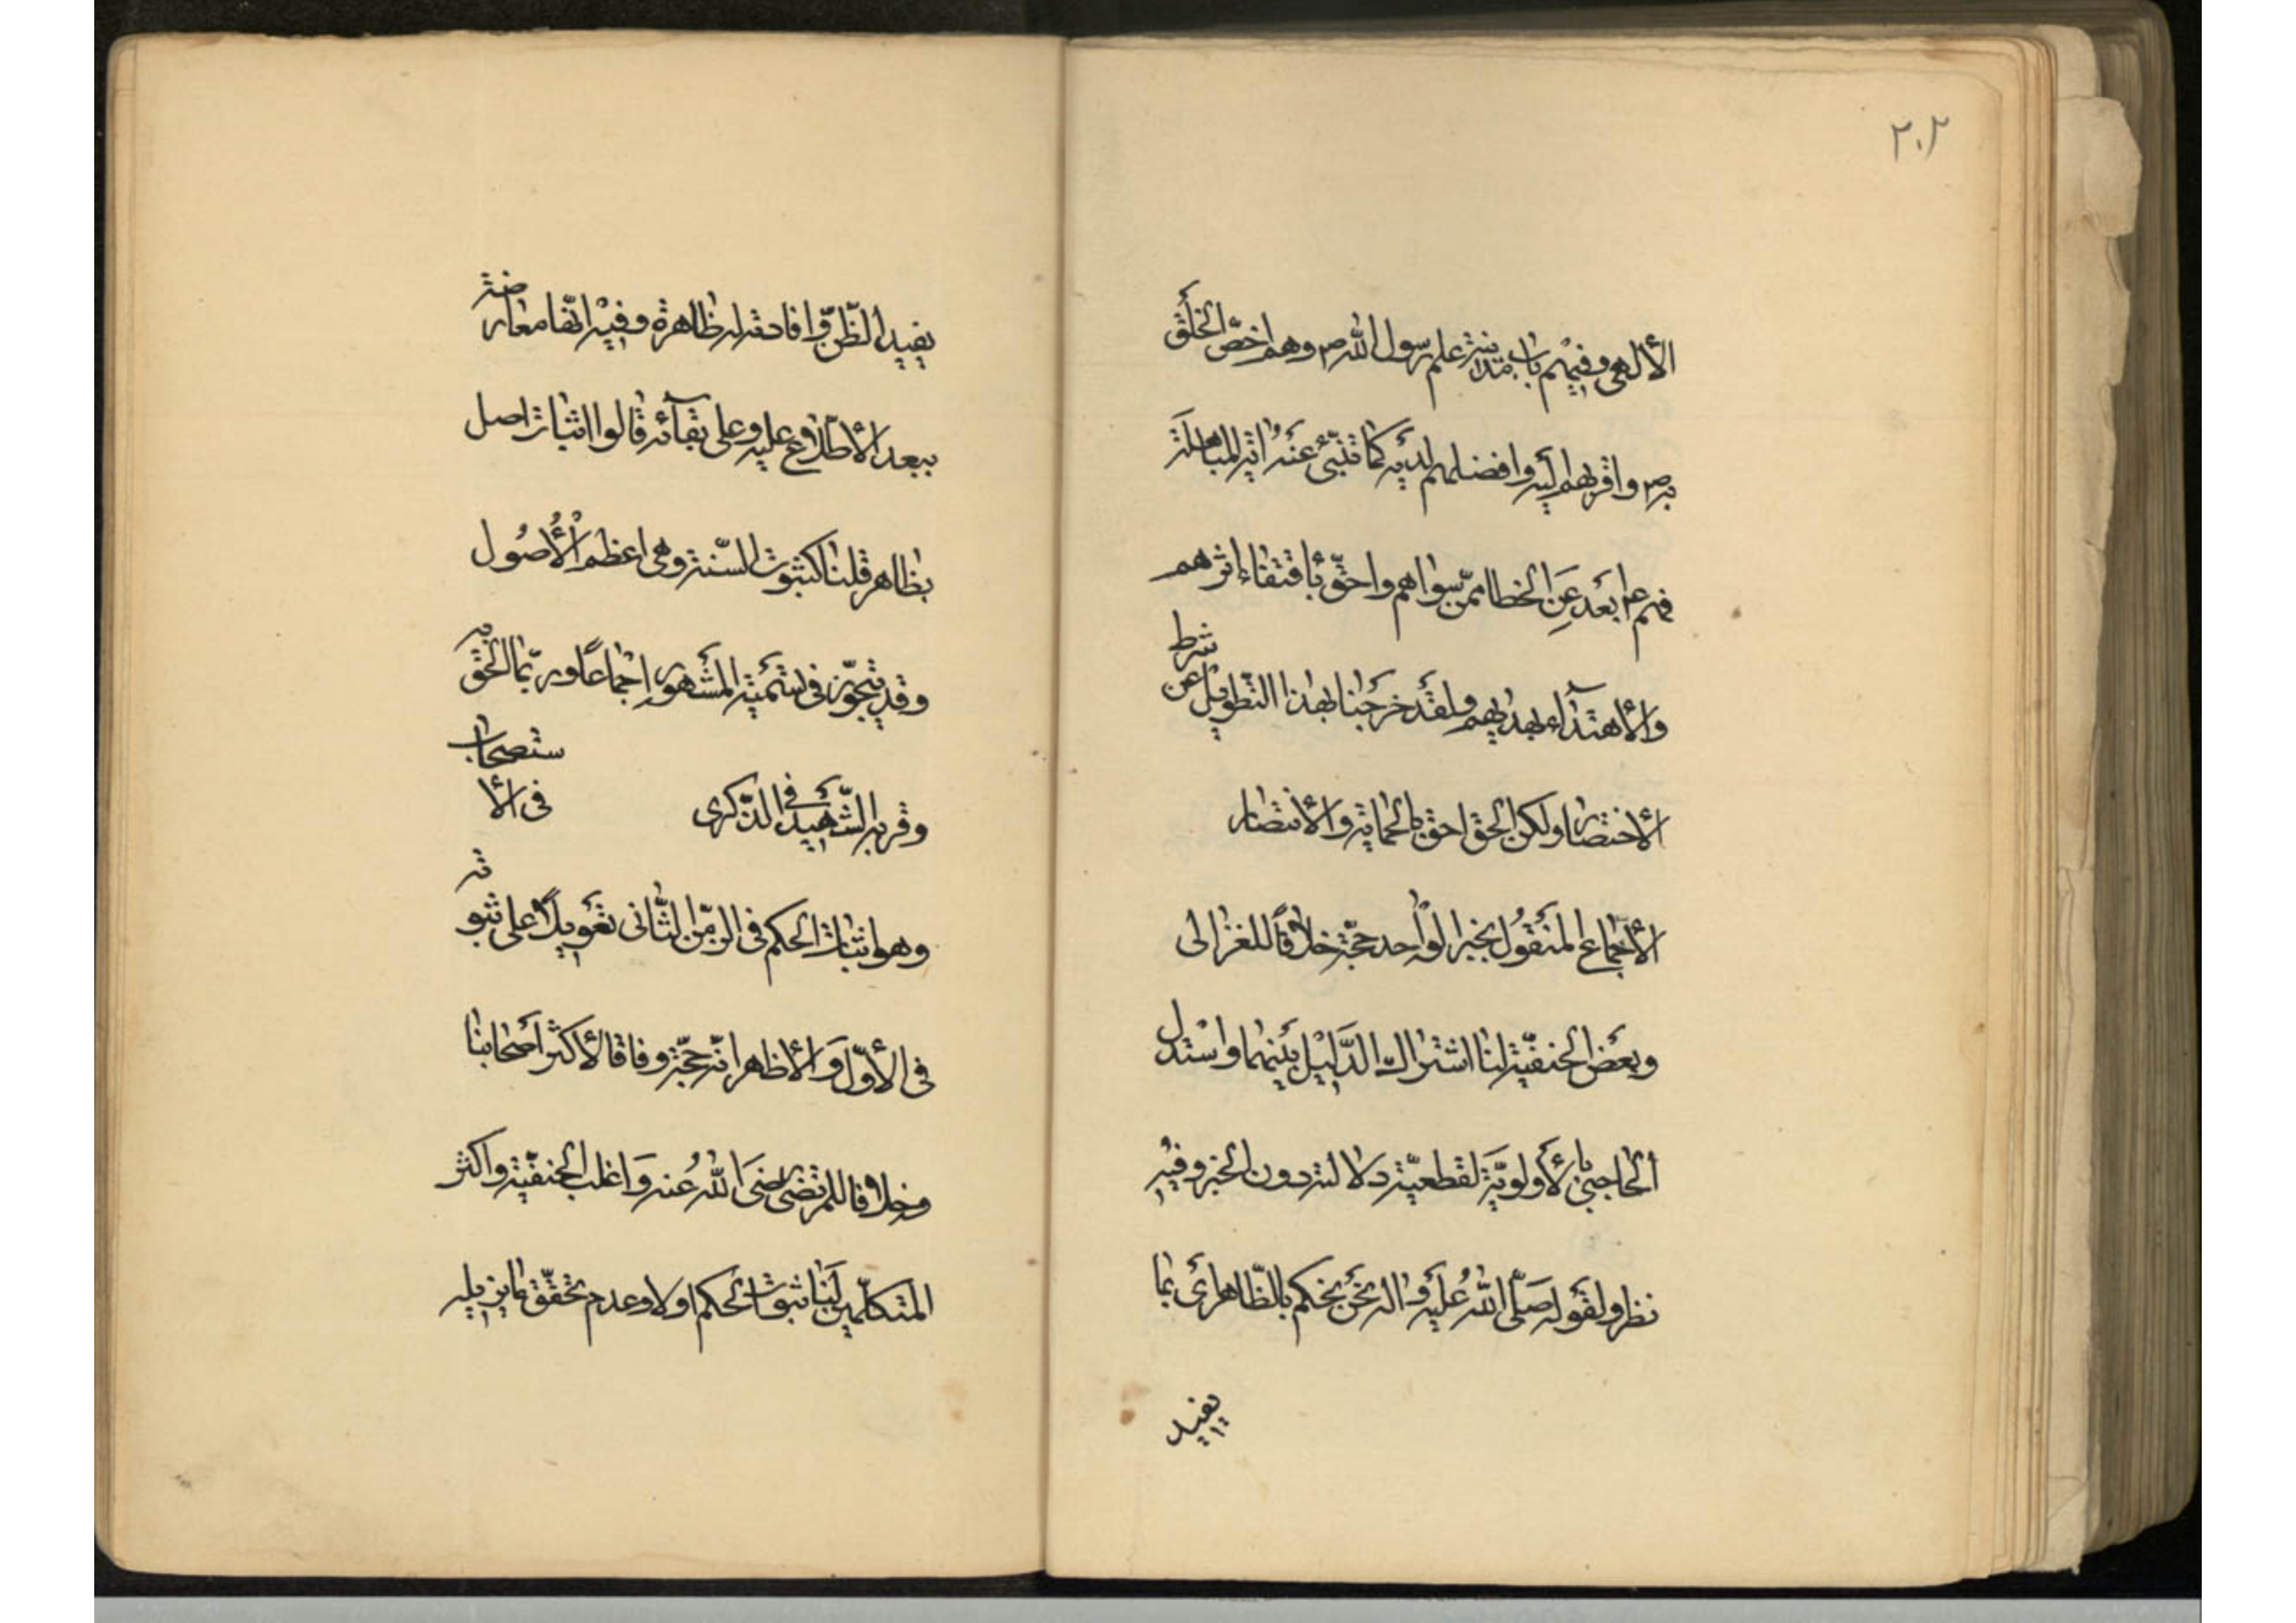 ٢٠٢
الألهى وفيهم باب مدينة علم رسول الله ص وهم اخصّ الخلق
به ص واقربهم اليه وافضلهم لديه كما تنبّئ عنه اية المباهلة
فهم ع ابعد عن الخطا ممّن سواهم واحقّ باقتفاء اثرهم
والاهتداء بهديهم ولقد خرجنا بهذا التّطويل عن شرط
الأختصار ولكن الحق احق بالحماية والأنتصار
الأجماع المنقول بخبر الواحد حجّة خلافًا للغزالى
وبعض الحنفيّة لنا اشتراك الدّليل بينهما واستدل
الحاجبى بالأولويّة لقطعيّة دلالته دون الخبر وفيه
نظر ولقوله صلّى الله عليه واله نحن نحكم بالظّاهر اى بما
يفيد
يفيد الظّن وافادته له ظاهرة وفيه انّها معارضة
ببعد الأطّلاع عليه وعلى بقآئه قالوا اثبات اصل
بظاهر قلنا كثبوت السّنة وهى اعظم الأصول
وقد يتجوّز فى تسمية المشهور اجماعًا وربّما الحق به
وقربه الشّهيد فى الذّكرى فى الأستصحاب
وهو اثبات الحكم فى الزّمن الثّانى تعويلاً على ثبوته
فى الأوّل والأظهر انّه حجّة وفاقا لأكثر اصحابنا
وخلافا للمرتضى رضى الله عنه واغلب الحنفيّة واكثر
المتكلّمين لنا ثبوت الحكم اولا وعدم تحقّق ما يزيله